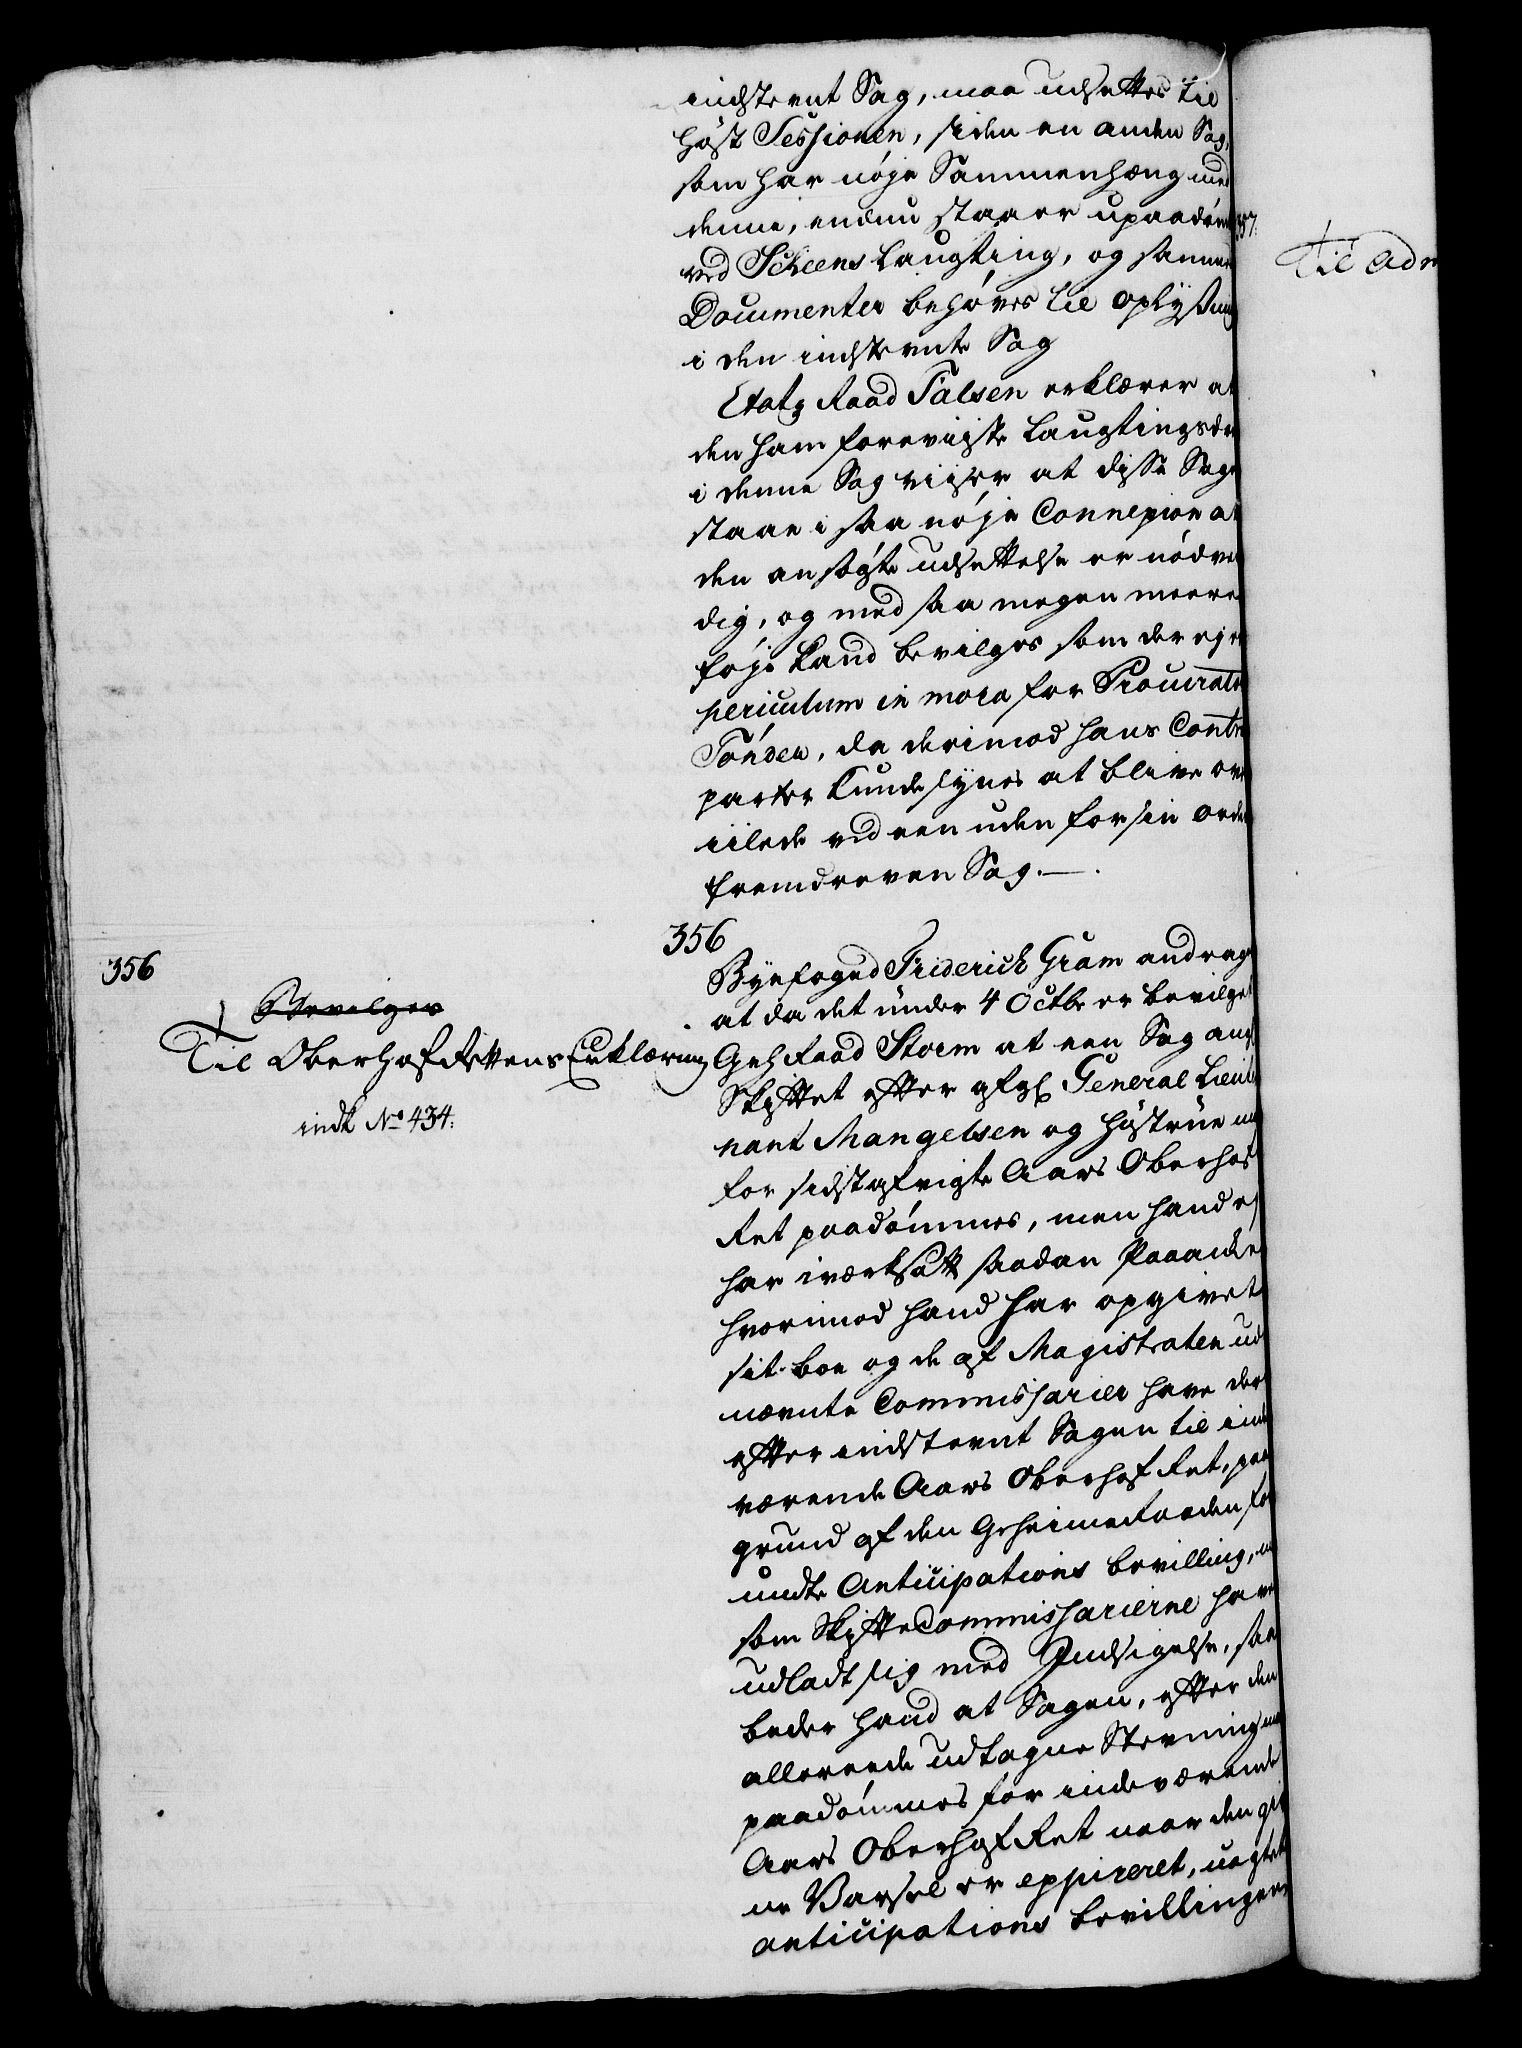 indstevnt Sag, maa udsættes til
høst Sessionen, siden en anden Sag,
som har nøje Sammenhæng med
denne, endnu staaer upaadømt
ved Scheens Laugting, og samme
Documenter behøves til oplysning
i den indstevnte Sag
Etatz Raad Falsen erklærer at
den ham foreviiste Laugtingsdom
i denne Sag viiser at disse Sager
staae i saa nøje Connexion at
den ansøgte udsettelse er nødven
dig, og med saa megen meere
føje kand bevilges som der ej er
periculum in mora for Procurator
Tønder, da derimod hans Contra
parter kunde synes at blive over
iilede ved een uden for sin orden
fremdreven Sag.—.
356
356
Byefoged Friderich Gram andrager
at da det under 4 Octbr er bevilget
Geh Raad Storm at een Sag ang:
Skiftet efter afg: General Lieute
nant Mangelsen og Høstrue maa
for sidstafvigte Aars Oberhof
Ret paadømmes, men hand ej
har iværksatt saadan Paaanke
hvorimod hand har opgivet
sit boe og de af Magistraten ud
nævnte Commissarier have der
efter indstevnt Sagen til inde
værende Aars Oberhof Ret, paa
grund af den Geheimeraaden for
undte Anticipations bevilling, m
som SkifteCommissarierne have
udladt sig med Indsigelse, saa
beder hand at Sagen, efter den
allereede udtagne Stevning maa
paadømmes for indeværende
Aars OberhofRet naar den giv
ne Varsel er expireret, uagtet
anticipations bevillingen
Bevilges
Til Oberhof Rettens Erklæring
indk No 434:
357.
Til Adm